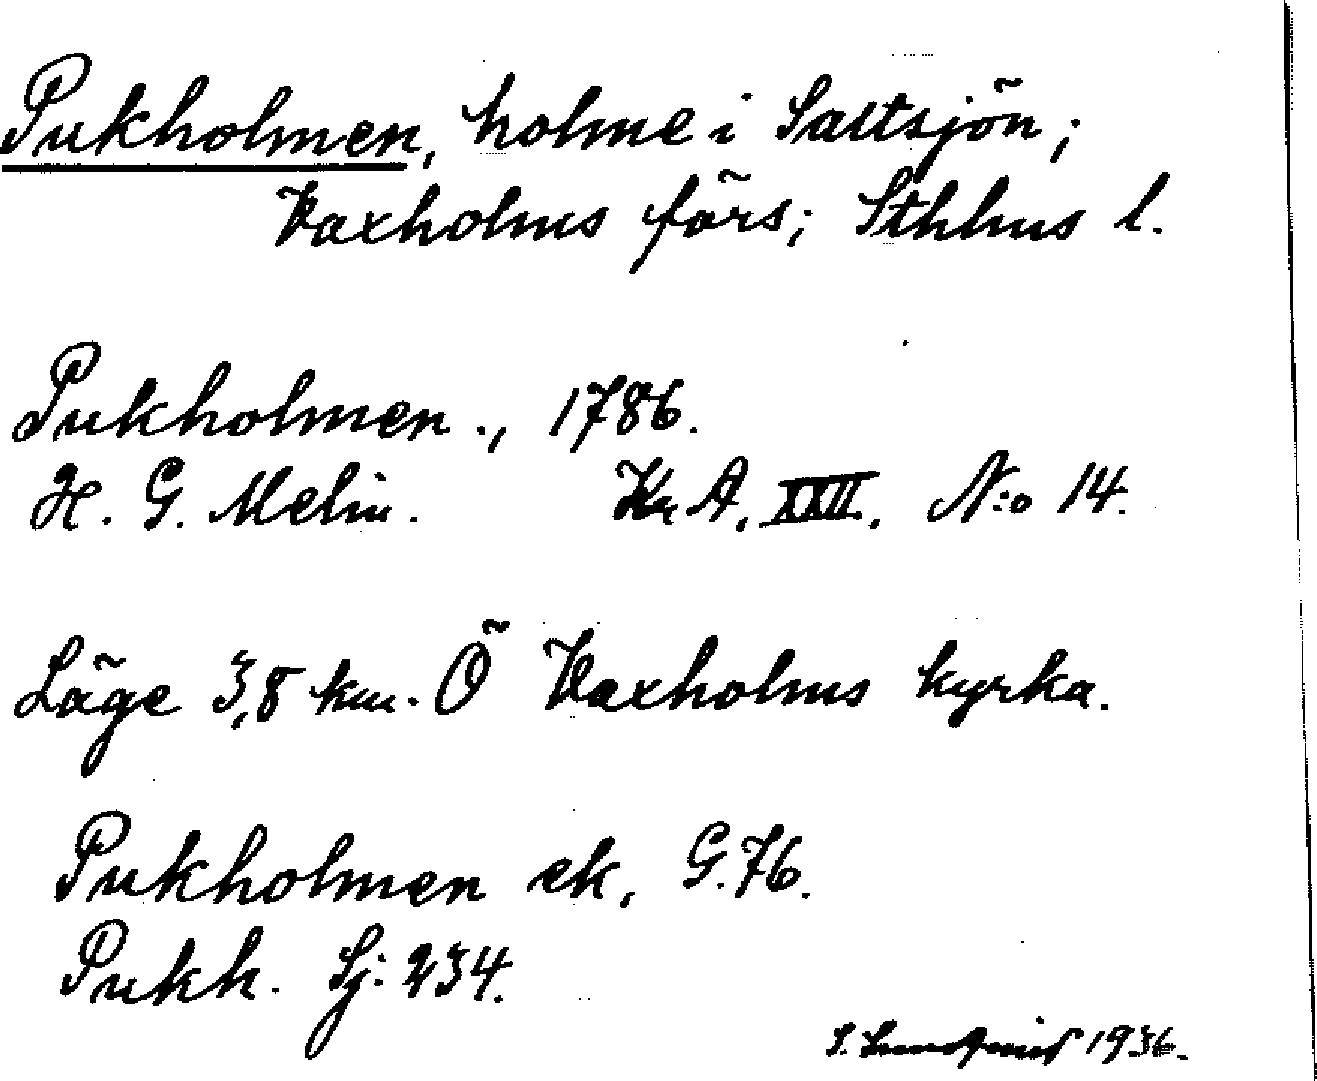 Pukholmen, holme i Saltsjön;
Vaxholms förs; Sthlms l.
Pukholmen., 1786.
H. G. Melin. Kr A. XXII. N:o 14.
Läge 3,8 km. Ö Vaxholms kyrka.
Pukholmen ek, G.76.
Pukh. Sj: 234.
S. Lundqvist 1936.